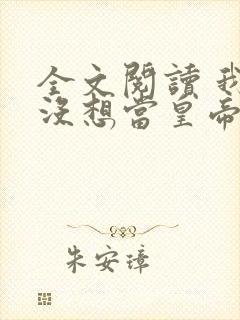 全文閱讀 我
沒想當皇帝
朱安璋